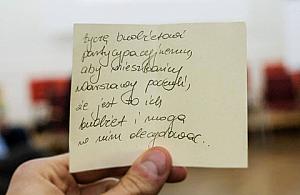 życzę budżetowi
partycypacyjnemu,
aby mieszkańcy
Warszawy poczuli,
że jest to ich
budżet i mogą
o nim decydować..